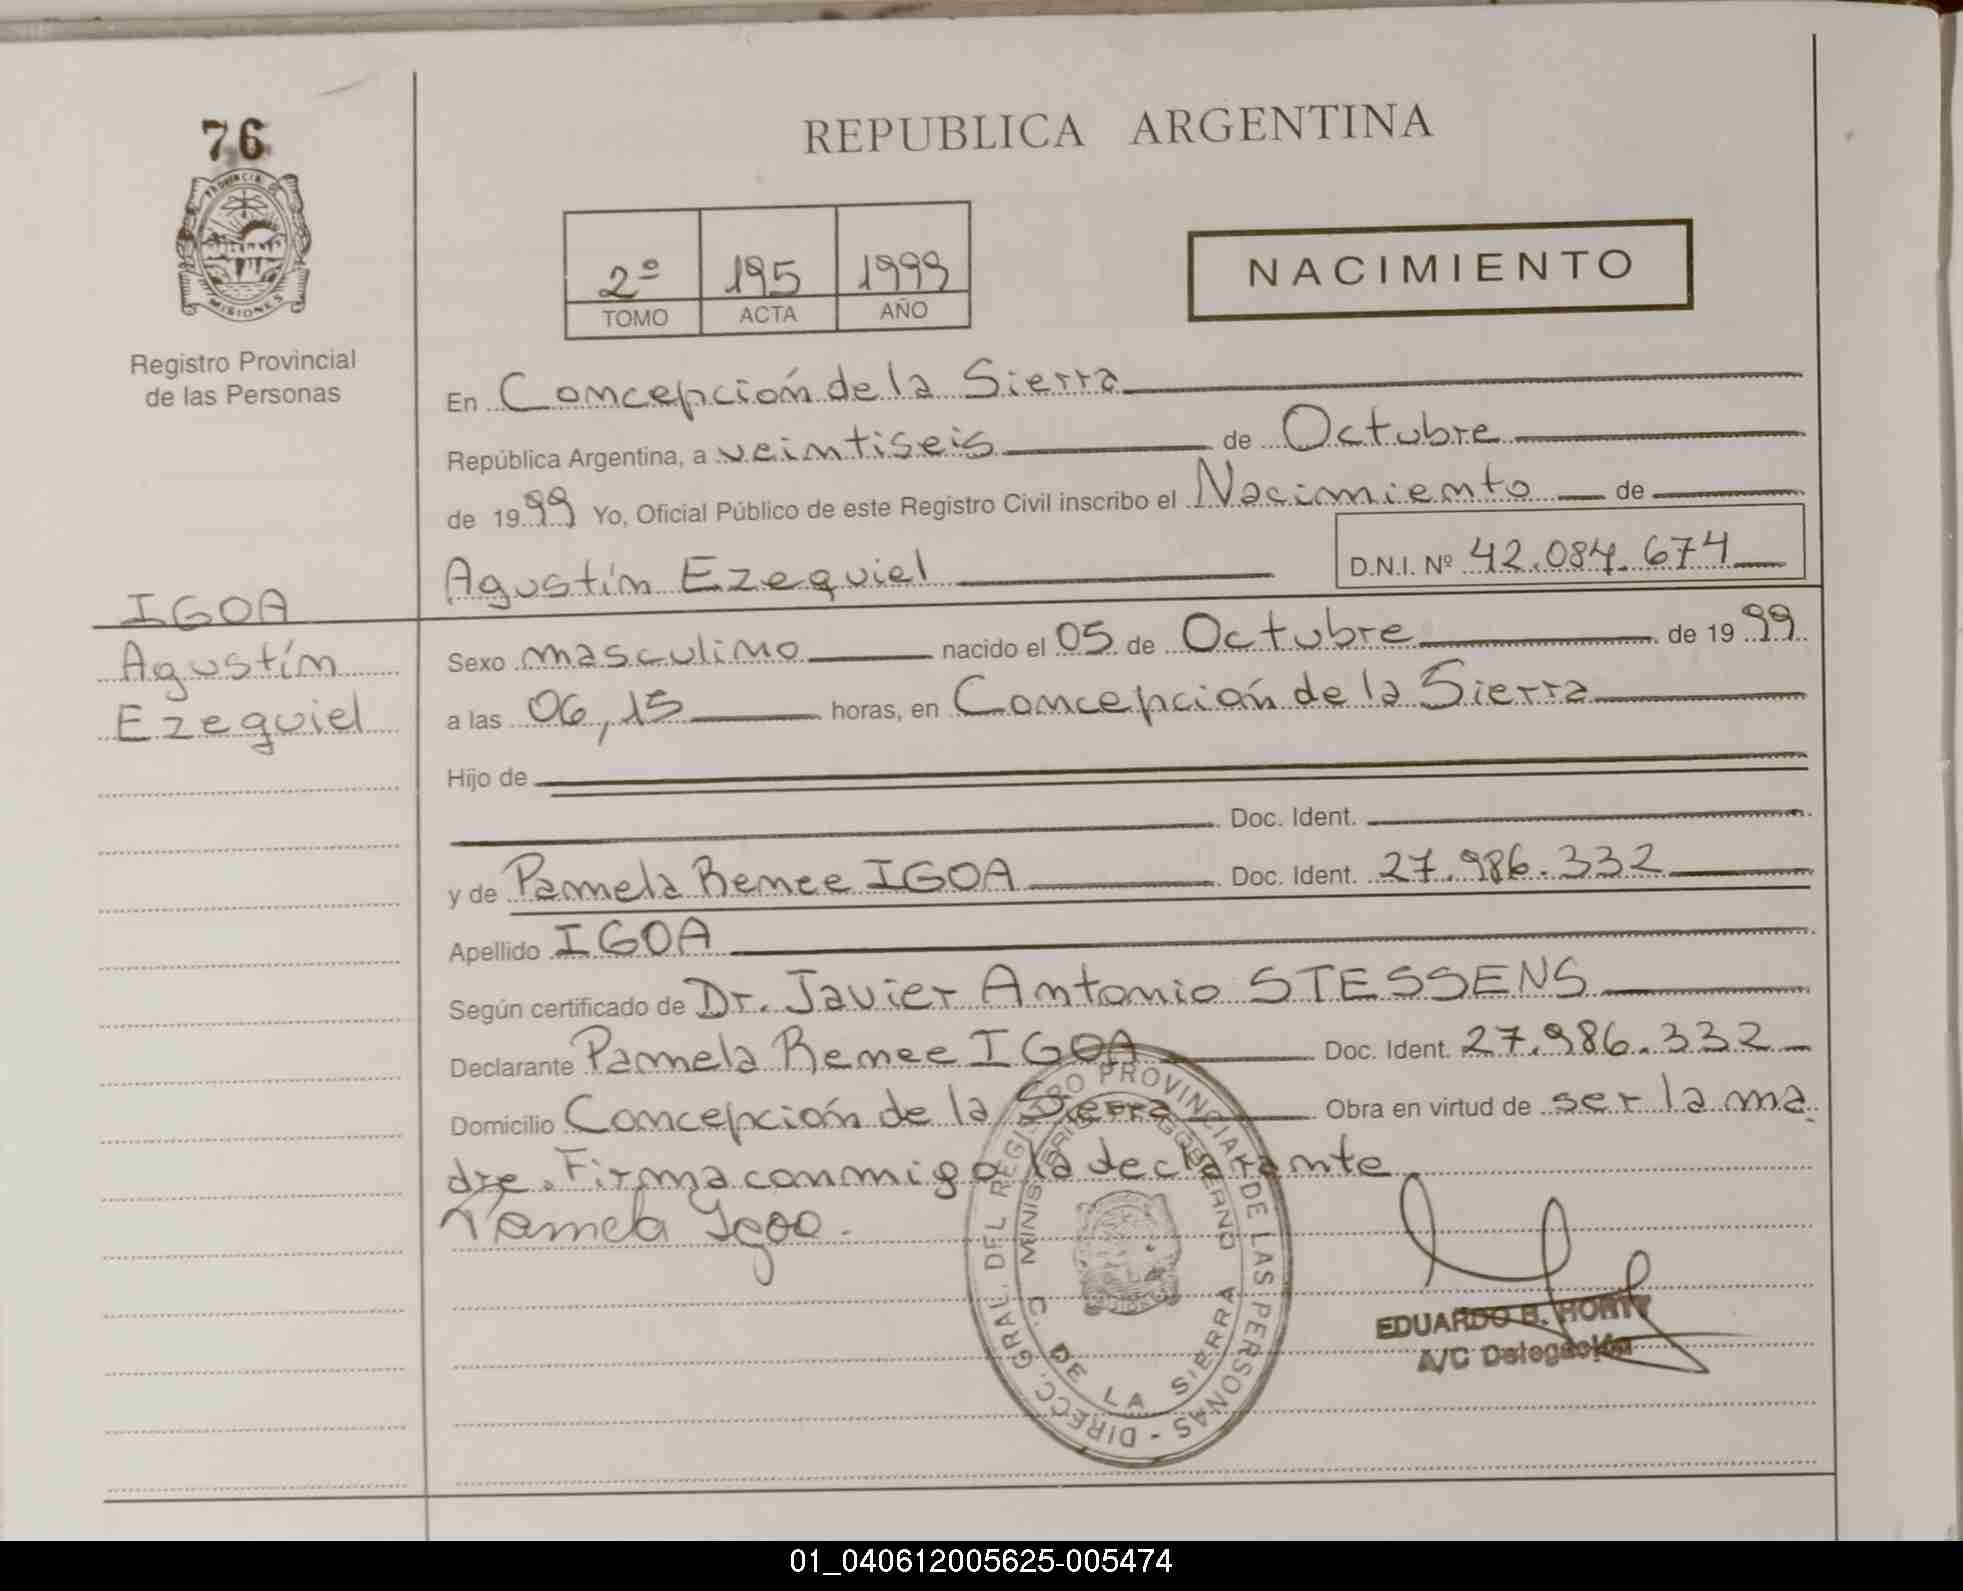 76
PROVINCIA DE
MISIONES
Registro Provincial
de las Personas
REPUBLICA ARGENTINA
2º 195 1999
TOMO ACTA AÑO
NACIMIENTO
En Concepción de la Sierra
República Argentina, a veintiseis de Octubre
de 1999 Yo, Oficial Público de este Registro Civil inscribo el Nacimiento de
Agustín Ezequiel D.N.I. Nº 42.084.674
IGOA
Agustín
Ezequiel
Sexo masculino nacido el 05 de Octubre de 1999
a las 06,15 horas, en Concepción de la Sierra
Hijo de
Doc. Ident.
y de Pamela Renee IGOA Doc. Ident. 27.986.332
Apellido IGOA
Según certificado de Dr. Javier Antonio STESSENS
Declarante Pamela Renee IGOA Doc. Ident. 27.986.332
Domicilio Concepción de la Sierra Obra en virtud de ser la ma
dre. Firma conmigo la declarante
Pamela Igoa.
DIRECC. GRAL. DEL REGISTRO PROVINCIAL DE LAS PERSONAS -
MINISTERIO GOBIERNO
C. DE LA SIERRA
EDUARDO B.
A/C Delegación
01_040612005625-005474